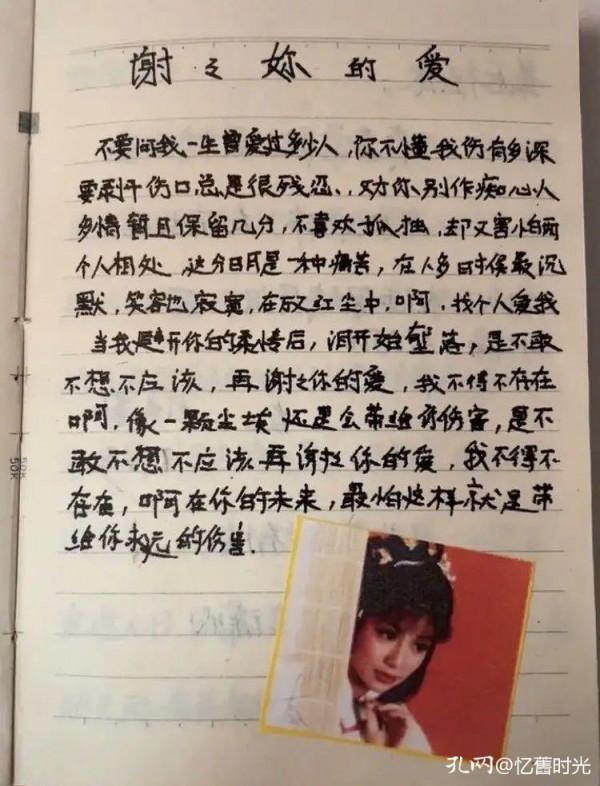 谢々妳的爱
不要问我一生曾爱过多少人,你不懂我伤有多深
要剥开伤口总是很残忍、对你、别作痴心人
多情暂且保留几分,不喜欢孤独,却又害怕两
个人相处 这分明是一种痛苦,在人多时候最沉
默,笑容也寂寞,在 红尘中,啊,找个人爱我
当我避开你的柔情后,泪开始坠落,是不敢
不想不应该,再谢々你的爱,我不得不存在
啊,像一颗尘埃 还是会带给你伤害,是不
敢不想不应该再谢谢你的爱,我不得不
存在,啊在你的未来,最怕这样就是带
给你永远的伤害.
孔网@忆舊时光